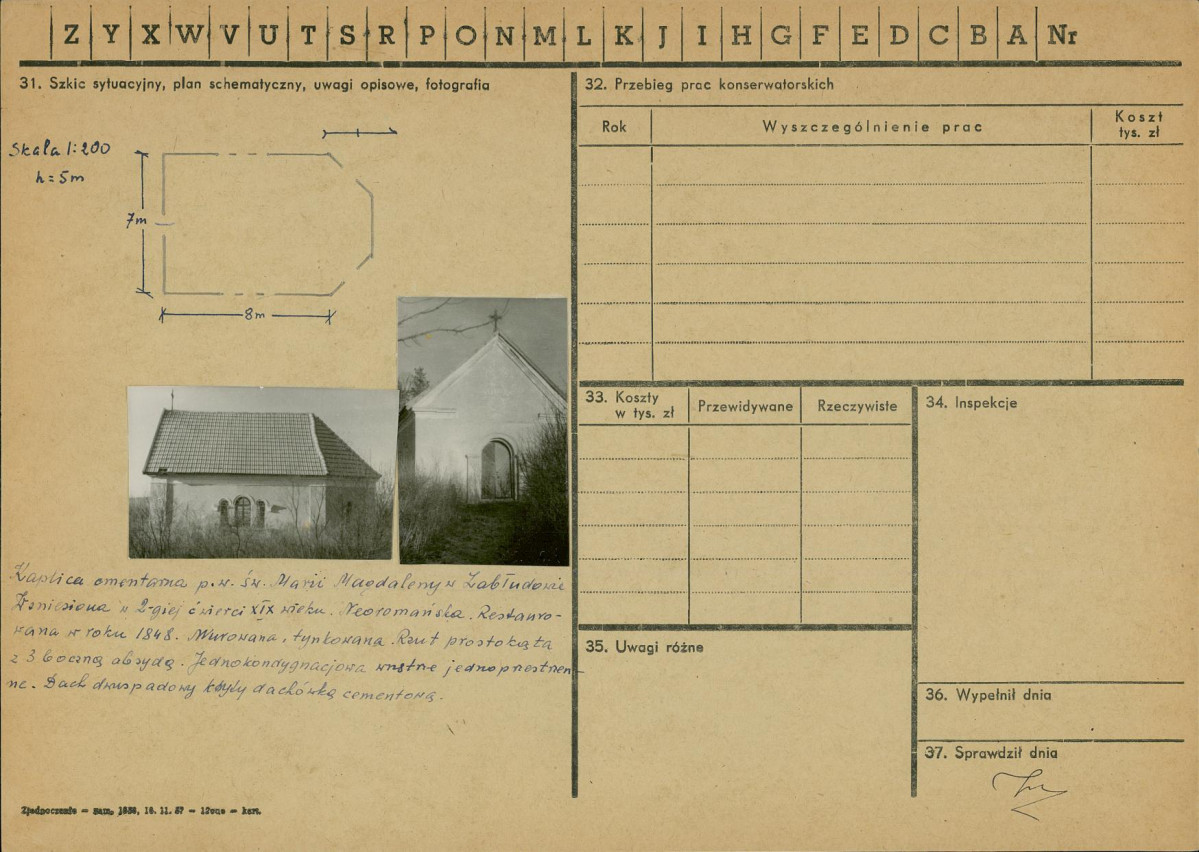 Z Y X W V U T S R P O N M L K J I H G F E D C B A Nr
31. Szkic sytuacyjny, plan schematyczny, uwagi opisowe, fotografia
Skala 1:200
h = 5m
7m
8m
Kaplica cmentarna p.w. św. Marii Magdaleny w Zabłudowie
Wzniesiona w 2-giej ćwierci XIX wieku. Neoromańska. Restauro-
wana w roku 1848. Murowana, tynkowana. Rzut prostokąta
z 3 boczną absydą. Jednokondygnacjowa wnętrze jednoprzestrzen-
ne. Dach dwuspadowy kryty dachówką cementową.
32. Przebieg prac konserwatorskich
Rok
Wyszczególnienie prac
Koszt
tys. zł
33. Koszty
w tys. zł
Przewidywane
Rzeczywiste
34. Inspekcje
35. Uwagi różne
36. Wypełnił dnia
37. Sprawdził dnia
Zjednoczenie — zam. 1838, 16. 11. 57 —